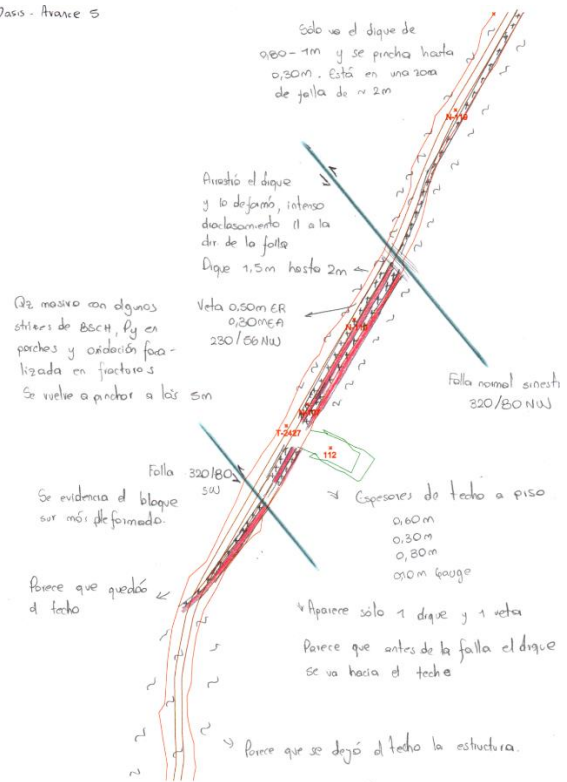 Oasis - Avance 5
Sólo va el dique de
0,80-1m y se pincha hasta
0,30m. Está en una zona
de falla de ~ 2m
N-119
Arrastró el dique
y lo deformó, intenso
diaclasamiento // a la
dir. de la falla
Dique 1,5m hasta 2m
Qz masivo con algunos
de BSCH, Py en
parches y oxidación foca-
lizada en fracturas
Se vuelve a pinchar a los 5m
Veta 0,50m ER
0,30m EA
230/56 NW
N-118
Falla normal sinest
320/80 NW
T-2427
112
Falla 320/80
SW
Se evidencia el bloque
sur más deformado.
Espesores de techo a piso
0,60m
0,30m
0,80m
Gouge
Parece que quedó
al techo
Aparece sólo 1 dique y 1 veta
Parece que antes de la falla el dique
se va hacia el techo
Parece que se dejó al techo la estructura.